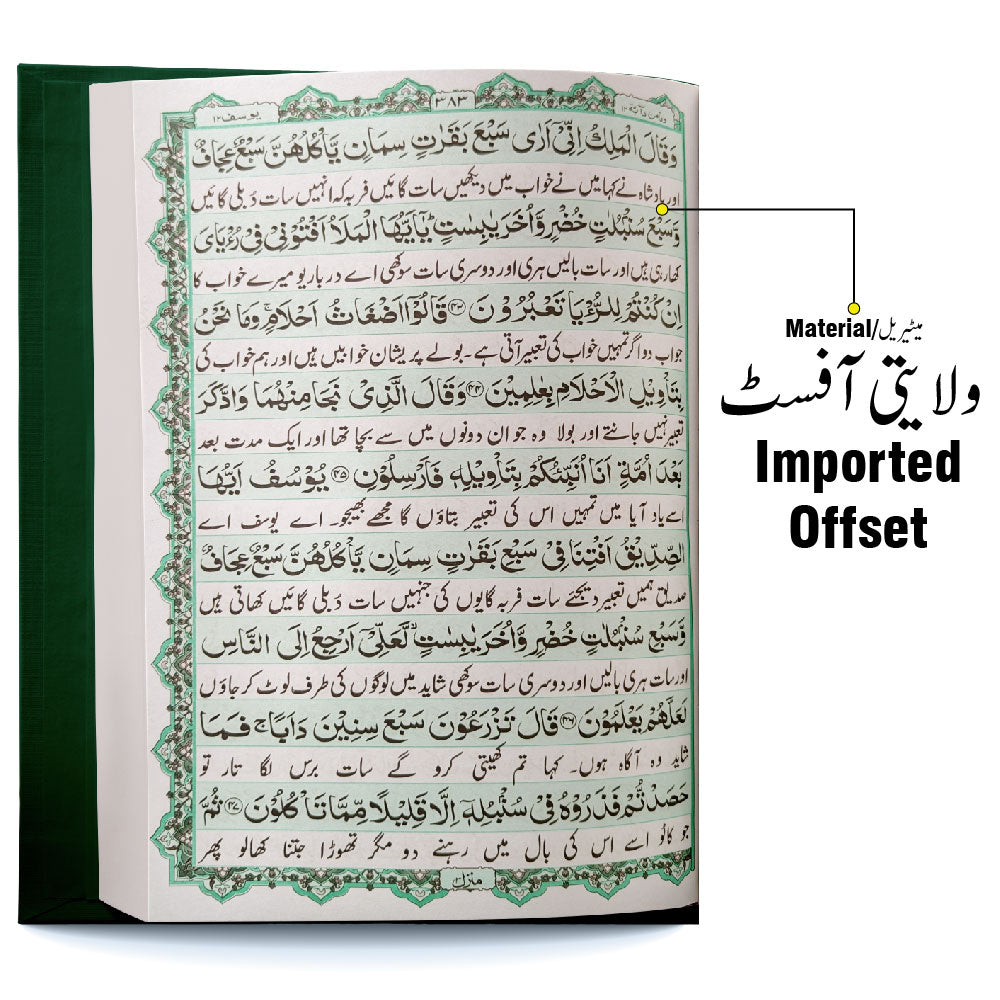 یوسف ۱۲
۳۸۳
وَقَالَ الْمَلِكُ اِنِّیْۤ اَرٰی سَبْعَ بَقَرٰتٍ سِمَانٍ یَّاْكُلُهُنَّ سَبْعٌ عِجَافٌ
اور بادشاہ نے کہا میں نے خواب میں دیکھیں سات گائیں فربہ کہ انہیں سات دُبلی گائیں
وَّسَبْعَ سُنْۢبُلٰتٍ خُضْرٍ وَّاُخَرَ یٰبِسٰتٍ ؕ یٰۤاَیُّهَا الْمَلَاُ اَفْتُوْنِیْ فِیْ رُءْیَایَ
کھا رہی ہیں اور سات بالیں ہری اور دوسری سات سوکھی اے درباریو میرے خواب کا
اِنْ كُنْتُمْ لِلرُّءْیَا تَعْبُرُوْنَ ﴿۴۳﴾ قَالُوْۤا اَضْغَاثُ اَحْلَامٍ ۚ وَمَا نَحْنُ
جواب دو اگر تمہیں خواب کی تعبیر آتی ہے۔ بولے پریشان خوابیں ہیں اور ہم خواب کی
بِتَاْوِیْلِ الْاَحْلَامِ بِعٰلِمِیْنَ ﴿۴۴﴾ وَقَالَ الَّذِیْ نَجَا مِنْهُمَا وَادَّكَرَ
تعبیر نہیں جانتے اور بولا وہ جو ان دونوں میں سے بچا تھا اور ایک مدت بعد
بَعْدَ اُمَّةٍ اَنَا اُنَبِّئُكُمْ بِتَاْوِیْلِهٖ فَاَرْسِلُوْنِ ﴿۴۵﴾ یُوْسُفُ اَیُّهَا
اسے یاد آیا میں تمہیں اس کی تعبیر بتاؤں گا مجھے بھیجو۔ اے یوسف اے
الصِّدِّیْقُ اَفْتِنَا فِیْ سَبْعِ بَقَرٰتٍ سِمَانٍ یَّاْكُلُهُنَّ سَبْعٌ عِجَافٌ
صدیق ہمیں تعبیر دیجئے سات فربہ گایوں کی جنہیں سات دُبلی گائیں کھاتی ہیں
وَّسَبْعِ سُنْۢبُلٰتٍ خُضْرٍ وَّاُخَرَ یٰبِسٰتٍ ۙ لَّعَلِّیْۤ اَرْجِعُ اِلَی النَّاسِ
اور سات ہری بالیں اور دوسری سات سوکھی شاید میں لوگوں کی طرف لوٹ کر جاؤں
لَعَلَّهُمْ یَعْلَمُوْنَ ﴿۴۶﴾ قَالَ تَزْرَعُوْنَ سَبْعَ سِنِیْنَ دَاَبًا ۚ فَمَا
شاید وہ آگاہ ہوں۔ کہا تم کھیتی کرو گے سات برس لگا تار تو
حَصَدْتُّمْ فَذَرُوْهُ فِیْ سُنْۢبُلِهٖۤ اِلَّا قَلِیْلًا مِّمَّا تَاْكُلُوْنَ ﴿۴۷﴾ ثُمَّ
جو کاٹو اسے اس کی بال میں رہنے دو مگر تھوڑا جتنا کھالو پھر
منزل ۳
Material/میٹیریل
ولایتی آفسٹ
Imported
Offset